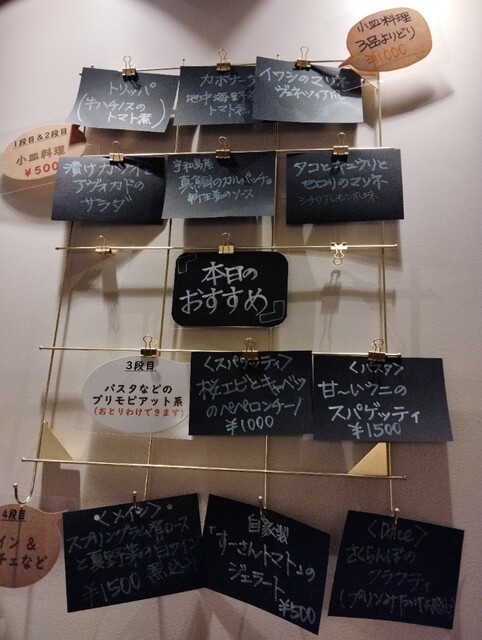 小皿料理
3品よりどり
¥1000
トリッパ
(牛ハチノスの
トマト煮)
カポナータ
地中海野菜
トマト煮
イワシのマリネ
ヴェネツィア風
1段目&2段目
小皿料理
¥500
漬けカツオと
アヴォカドの
サラダ
宇和島産
真鯛のカルパッチョ
新生姜のソース
タコとキュウリと
セロリのマリネ
シチリアレモン風味
本日の
おすすめ
3段目
パスタなどの
プリモピアット系
(おとりわけできます)
〈スパゲッティ〉
桜エビとキャベツ
のペペロンチーノ
¥1000
〈パスタ〉
甘〜いウニの
スパゲッティ
¥1500
4段目
イン&
チェなど
〈メイン〉
スプリングラム肩ロース
と夏野菜の白ワイン
¥1500 煮込み
自家製
「すーさんトマト」の
ジェラート
¥500
〈Dolce〉
さくらんぼの
クラフティ